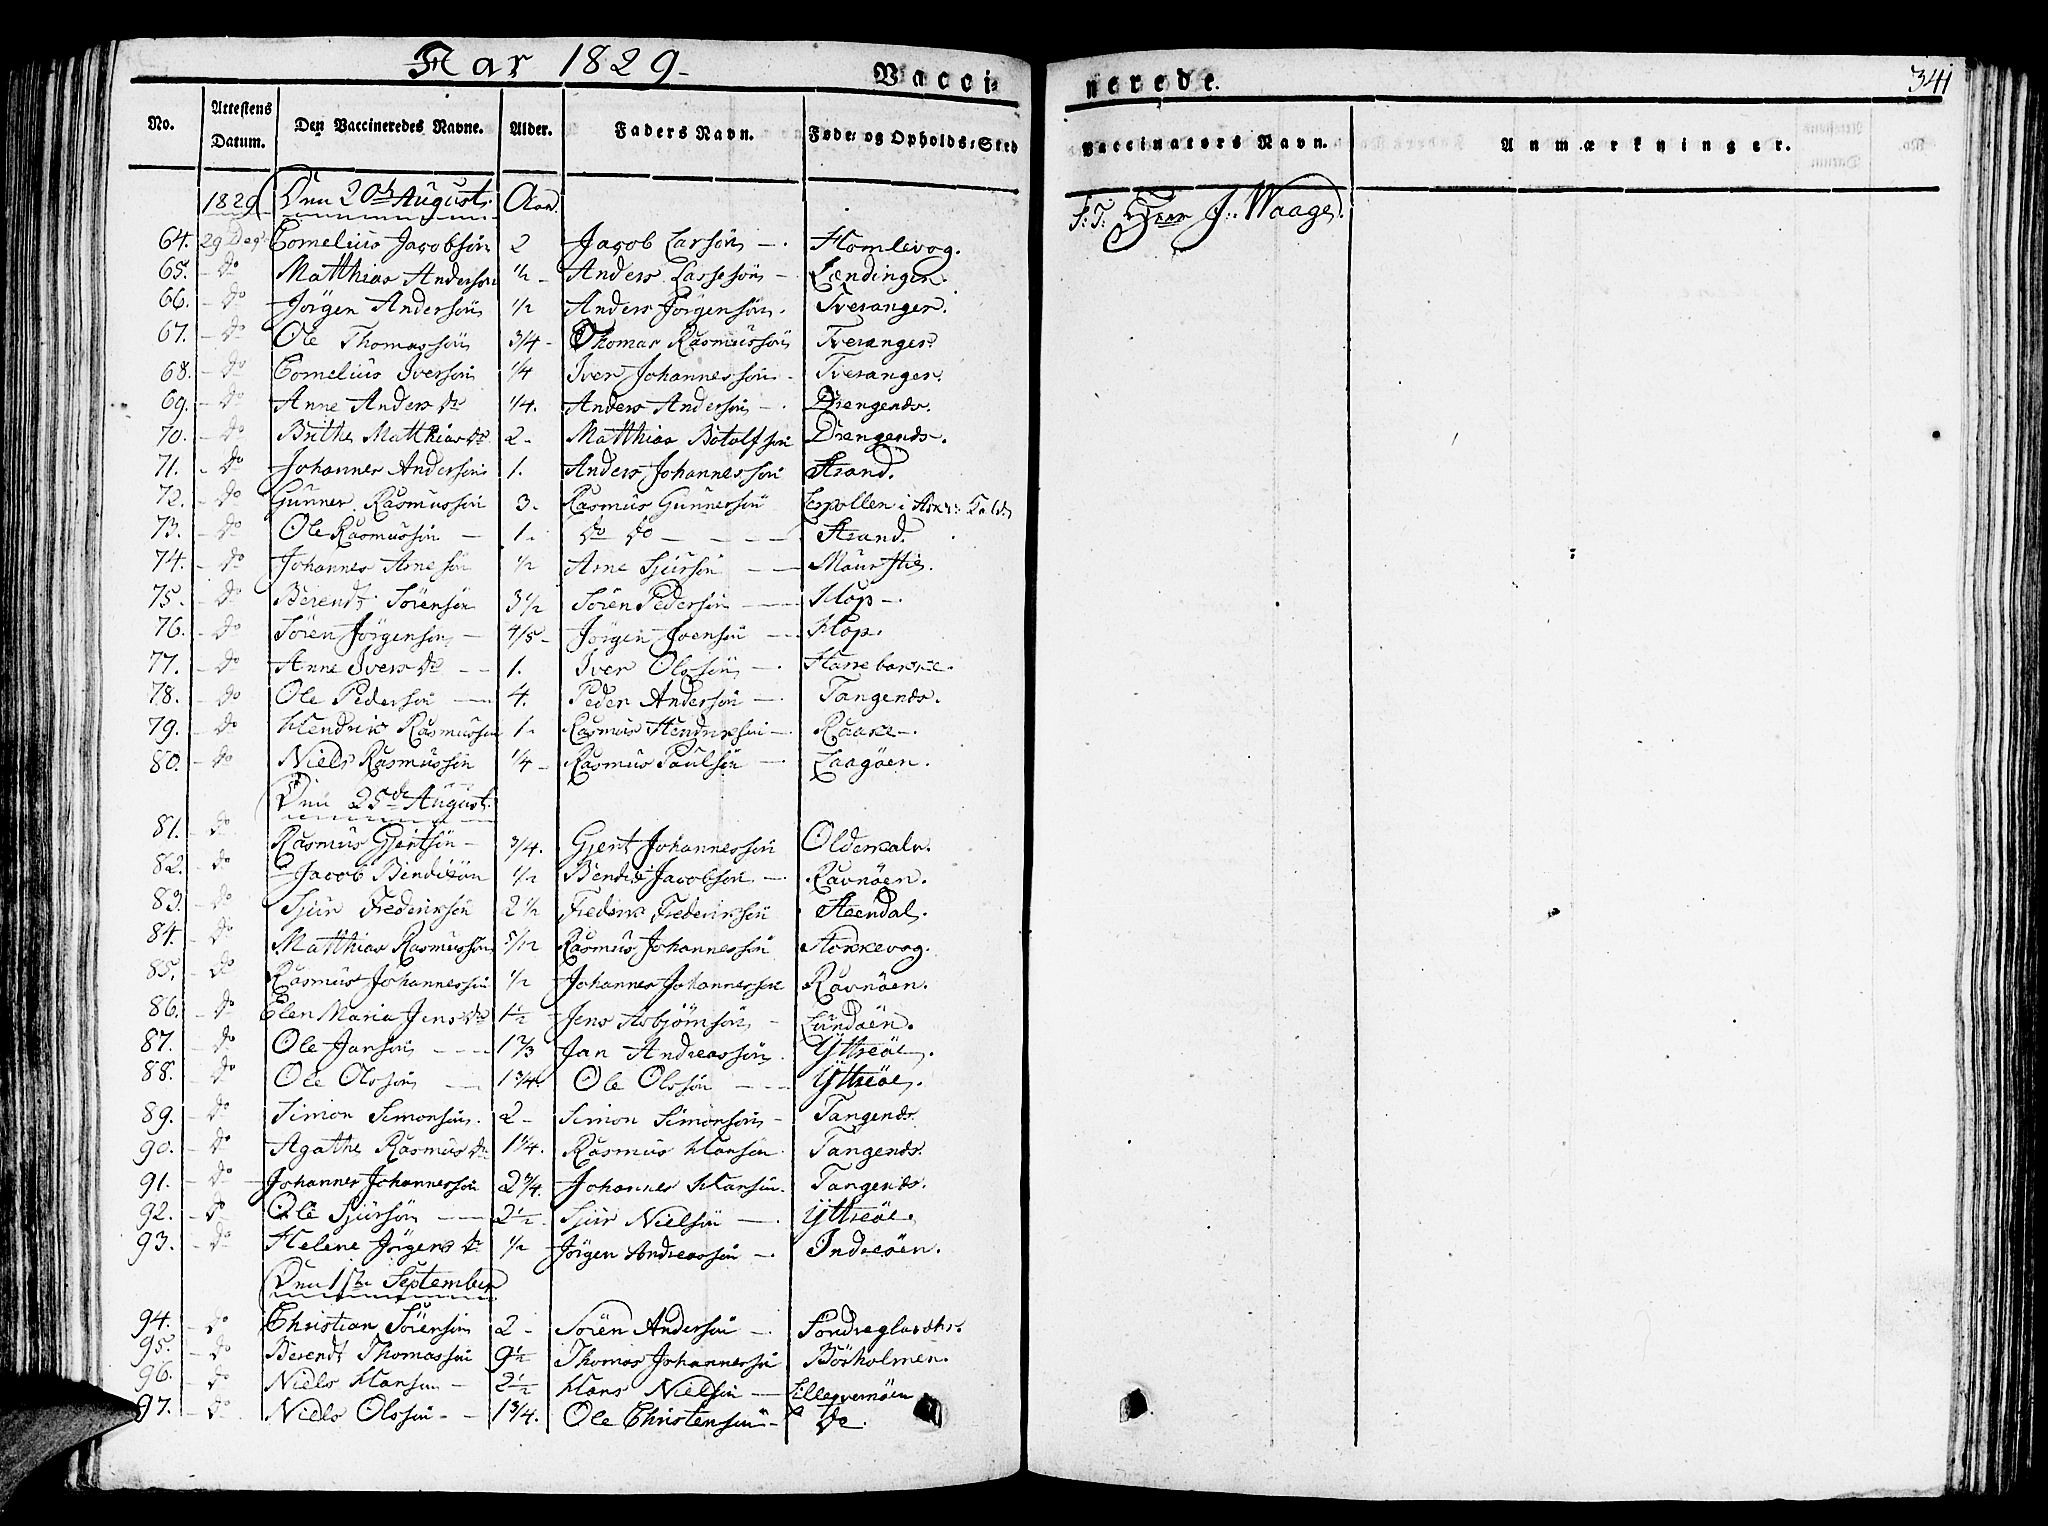 Aar 1829. Vacci= nerede. 341
No. Attestens Datum. Den Vaccineredes Navne. Alder. Faders Navn. Føde= og Opholds=Sted Vaccinators Navn. Anmærkninger.
1829 Den 20de August. Aar. S: T: Herr J. Waage.
64. 29 Dec. Cornelius Jacobsön 2 Jacob Larsön Homlevog.
65. do Matthias Andersön 1/2 Anders Larssön Lændinger.
66. do Jörgen Andersön 1/2 Anders Jörgensön. Tveranger.
67. do Ole Thomassön 3/4 Thomas Rasmussön Tveranger.
68. do Cornelius Iversön 1/4 Iver Johannessön Tveranger.
69. do Anne Andersdr 1/4. Anders Andersön Drengends.
70. do Brithe Matthiasdr 2 Matthias Botolfsön Drengends.
71. do Johannes Andersön 1. Anders Johannessön Strand.
72. do Gunner Rasmussön 3. Rasmus Gunnersön i
73. do Ole Rasmussön 1. do do Strand.
74. do Johannes Arnesön 1/2 Arne Sjursön
75. do Berendt Sörensön 3 1/2 Sören Pedersön Klop.
76. do Sören Jörgensön 4/5 Jörgen Joensön Klop.
77. do Anne Iversdr 1. Iver Olssön
78. do Ole Pedersön 4. Peder Andersön Tangends.
79. do Hendrik Rasmussön 1. Rasmus Hendriksön Raake.
80. do Niels Rasmussön 1/4 Rasmus Paulsön Laagöen.
Den 25de August.
81. do Rasmus Gjertsön 3/4. Gjert Johannessön Olderkalv.
82. do Jacob Bendixön 1/2 Bendix Jacobsön Ravnöen.
83. do Sjur Frederiksön 2 1/2 Frederik Frederiksön Steendal.
84. do Matthias Rasmussön 5/12 Rasmus Johannessön Stokkevog.
85. do Rasmus Johannessön 1/2 Johannes Johannessön Ravnöen.
86. do Elen Maria Jensdr 1 1/2 Jens Asbjörnsön Lundöen.
87. do Ole Jansön 1 2/3 Jan Andreassön Yttreöe.
88. do Ole Olssön 1 3/4. Ole Olssön Yttreöe.
89. do Simon Simonsön. 2 Simon Simonsön Tangends.
90. do Agathe Rasmusdr 1 3/4. Rasmus Hansön Tangends.
91. do Johannes Johannessön 2 3/4. Johannes Hansön. Tangends.
92. do Ole Sjursön 2 1/2 Sjur Nielsön Yttreöe.
93. do Helene Jörgensdr 1/2 Jörgen Andreassön Indreöen.
Den 1ste September
94. do Christian Sörensön 2 Sören Andersön
95. do Berendt Thomassön 9 1/2 Thomas Johannessön Börholmen.
96. do Niels Hansön 2 1/2 Hans Nielsön
97. do Niels Olssön 1 3/4. Ole Christensön do.